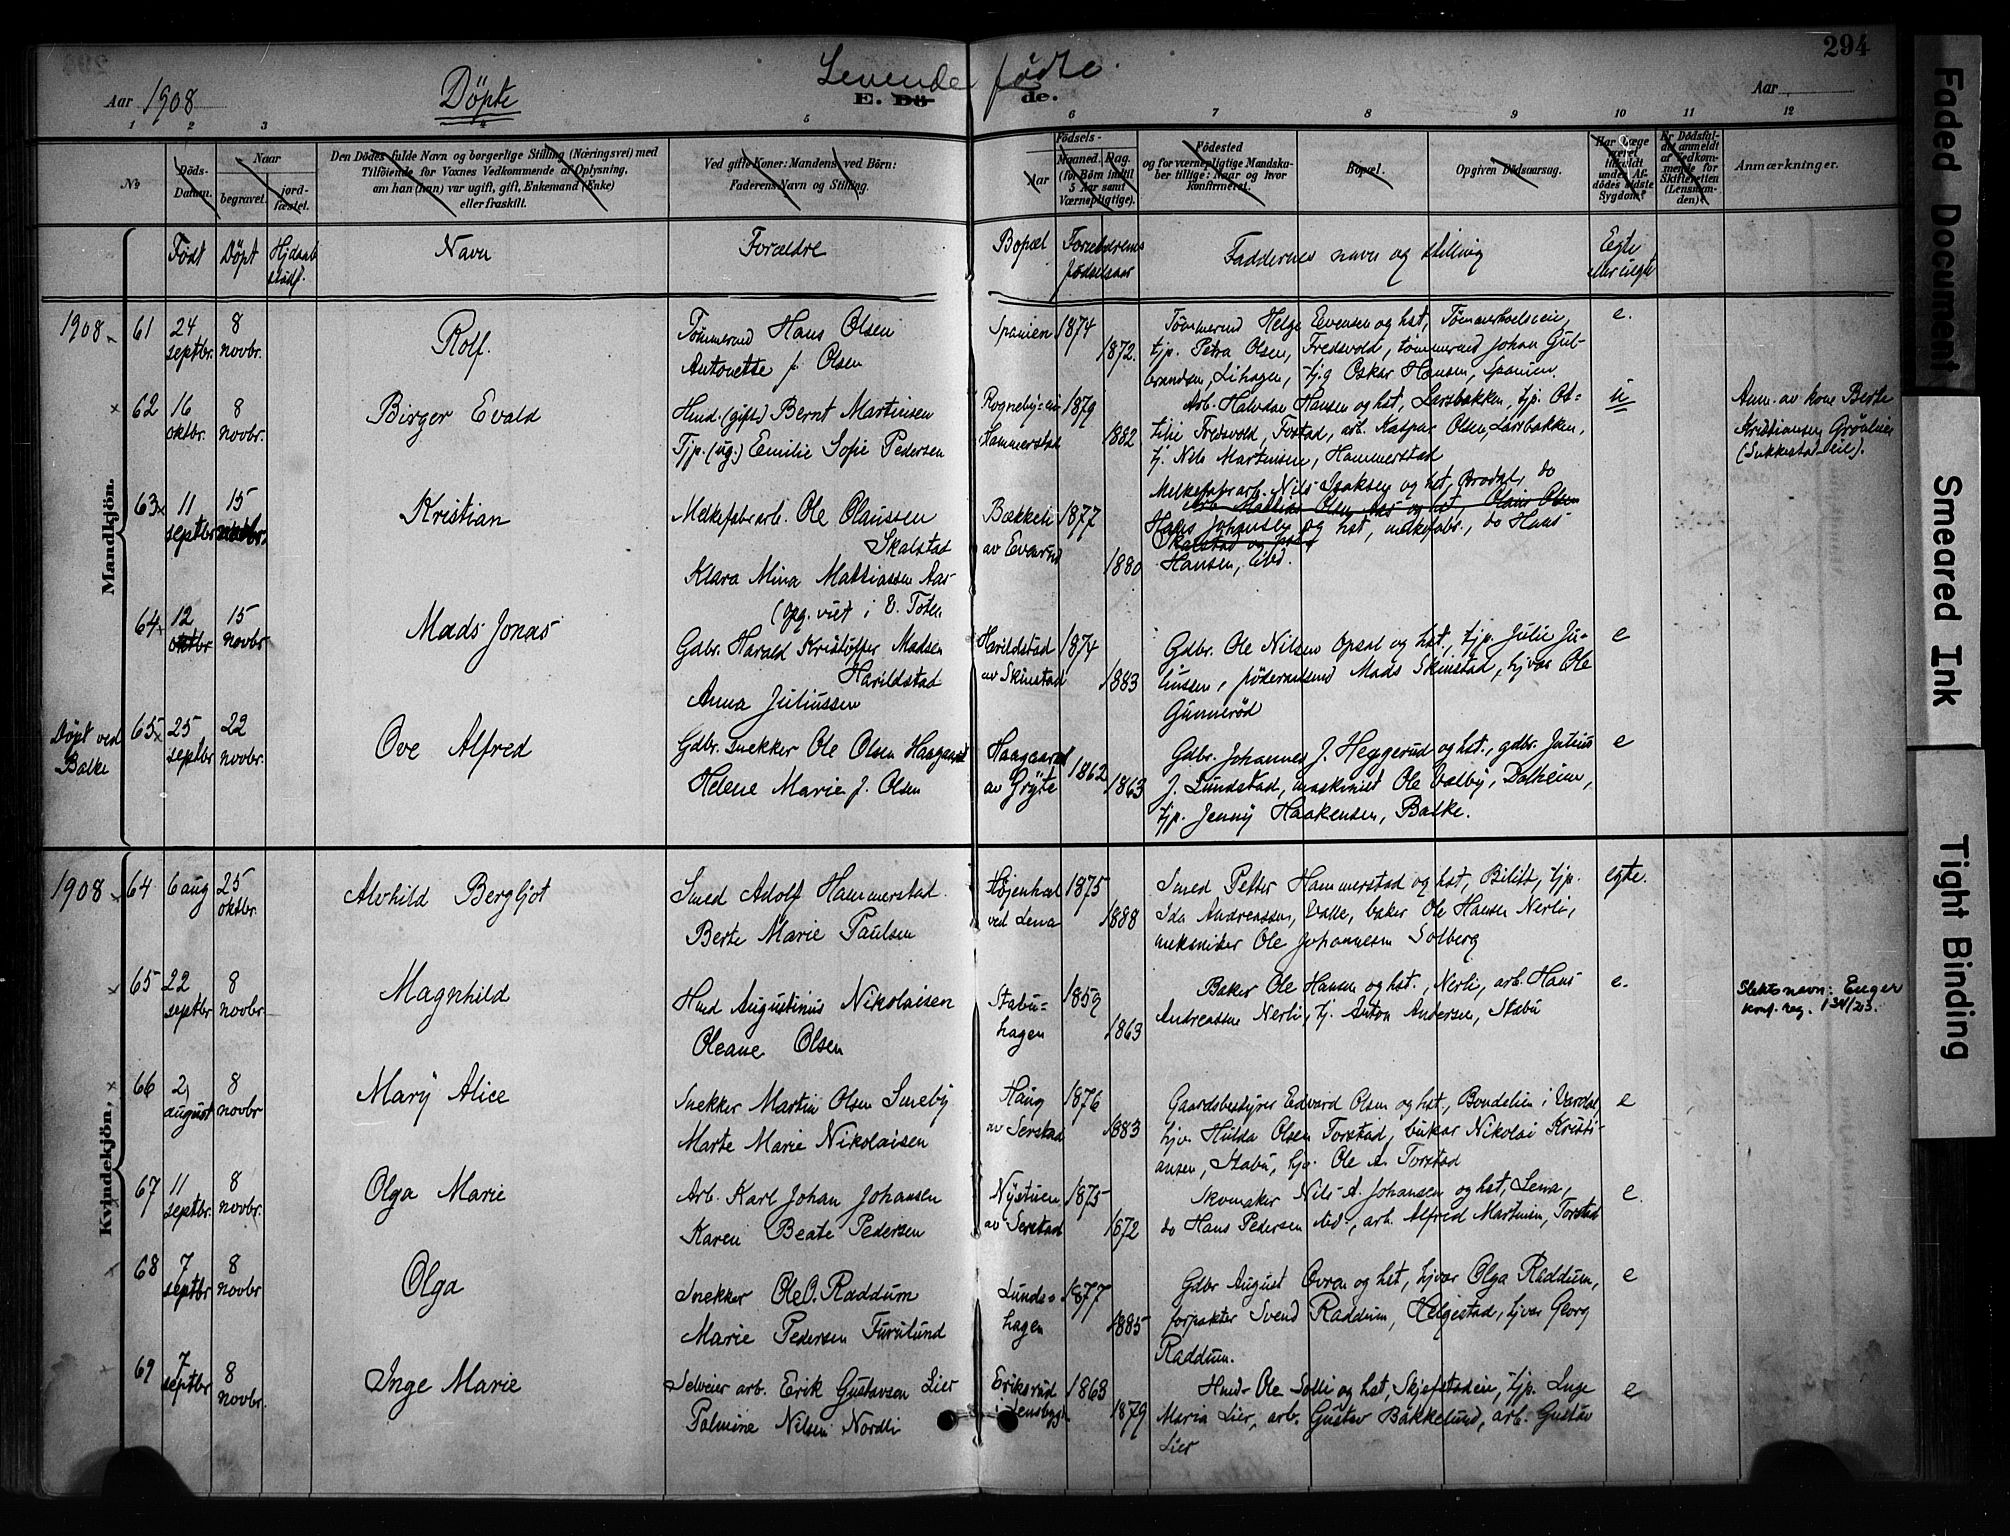 294
Levende fødte.
Aar 1908 Döpte E. Dö de. Aar
1 2 3 4 5 6 7 8 9 10 11 12
No
Döds-Datum.
Naar
begravet.
jord-fæstet.
Den Dödes fulde Navn og borgerlige Stilling (Næringsvei) med
Tilföiende for Voxnes Vedkommende af Oplysning,
om han (hun) var ugift, gift, Enkemand (Enke)
eller fraskilt.
Ved gifte Koner: Mandens, ved Börn:
Faderens Navn og Stilling.
Födsels-
Aar
Maaned.
(for Börn indtil
5 Aar samt
Værnepligtige).
Dag.
Födested
og for værnepligtige Mandska-
ber tillige: Naar og hvor
konfirmeret.
Bopæl.
Opgiven Dödsaarsag.
Har Læge
været
tilkaldt
under Af-
dödes sidste
Sygdom?
Er Dödsfal-
det anmeldt
af Vedkom-
mende for
Skifteretten
(Lensman-
den)?
Anmærkninger.
Født Döpt Hjdaab stadf. Navn Forældre Bopæl Forældrenes fødselsaar Faddernes navn og stilling Egte eller uegte
Mandkjön.
1908 61 24 septbr. 8 novbr. Rolf.
Tømmermd Hans Olsen
Antonette f. Olsen
Spanien 1874
1872.
Tømmermd Helge Evensen og hst,
tjp. Petra Olsen, Fredsvold, tømmermd Johan Gul-
brandsen, Lihagen, tj.g Oskar Hansen, Spanien.
e.
62 16 oktbr. 8 novbr. Birger Evald
Hmd. (gift) Bernt Martinsen
Tjp. (ug.) Emilie Sofie Pedersen
1879
Hammerstad 1882
Arb. Halvdan Hansen og hst, Larsbakken, tjp. Ot-
tilie Fredsvold, Fostad, arb. Kaspar Olsen, Larsbakken,
tj. Nils Martinsen, Hammerstad
u
Anm. av kone Berte
Kristiansen
63 11 septbr 15 novbr. Kristian
Melkefabrarb. Ole Olaussen
Skalstad
Klara Mina Mathiassen Aas-
(opg. viet i V. Toten
Bækkeli 1877
av Evarud 1880
Melkefabrarb. Nils Isaksen og hst, do
Arb. Mathias Olsen Aas og hst, Olaus Olsen
Hans Johansen og hst, melkefabr., do Hans
Skalstad og hst
Hansen, ibid.
64 12 oktbr 15 novbr Mads Jonas
Gdbr. Harald Kristoffer Madsen
Harildstad
Anna Juliussen
Harildstad 1874
av Skinstad 1883
Gdbr. Ole Nilsen Opsal og hst, tjp. Julie Ju-
liussen, föderaadsmd Mads Skinstad, hjvær Ole
Gunnerød
e
Döpt ved Balke
65 25 septbr 22 novbr. Ove Alfred
Gdbr. snekker Ole Olsen Haagaard
Helene Marie J. Olsen
Haagaard 1862
av Gryte 1863
Gdbr. Johannes J. Heggerud og hst., gdbr. Julius
J. Lundstad, maskinist Ole Valby, Dalheim,
tjp. Jenny Haakensen, Balke.
e
Kvindekjön.
1908 64 6 aug 25 oktbr. Alvhild Bergljot
Smed Adolf Hammerstad
Berte Marie Paulsen
1875
ved Lena 1888
Smed Petter Hammerstad og hst, Bilitt, tjp.
Ida Andreassen, Valle, baker Ole Hansen Nerli,
mekaniker Ole Johannesen Solberg
egte.
65 22 septbr 8 novbr. Magnhild
Hmd Augustinus Nikolaisen
Oleane Olsen
Stabu- 1859
hagen 1863
Baker Ole Hansen og hst., Nerli, arb. Hans
Andreassen Nerli, tj. Anton Andersen, Stabu
e.
Slektsnavn: Enger
kong. reg. 134/23.
66 2 august 8 novbr Mary Alice
Snekker Martin Olsen Smeby
Marte Marie Nikolaisen
Haug 1876
av Serstad 1883
Gaardsbestyrer Edvard Olsen og hst, Bondelien i Vardal,
hjv. Hulda Olsen Torstad, Nikolai Kristi-
ansen, Stabu, hjv. Ole A. Torstad
e
67 11 septbr. 8 novbr. Olga Marie
Arb. Karl Johan Johansen
Karen Beate Pedersen
Nystuen 1875
av Serstad 1872
Skomaker Nils A. Johansen og hst, Lena,
do Hans Pedersen ibid., arb. Alfred Martinsen, Torstad
e.
68 7 septbr 8 novbr Olga
Snekker Ole O. Raddum
Marie Pedersen Furulund
Lunds- 1877
hagen 1885
Gdbr August Ovren og hst, hjvær Olga Raddum,
forpakter Svend Raddum, Helgestad, hjvær Georg
Raddum.
e
69 7 septbr 8 novbr. Inge Marie
Selveier arb. Erik Gustavsen Lier
Palmine Nilsen Nordli
Eriksrud 1863
i Lensbygd 1879
Hmd Ole Solli og hst, Skjefstadeie, tjp. Inge
Maria Lier, arb. Gustav Bakkelund, arb. Gustav
Lier
e
Faded Document
Smeared Ink
Tight Binding